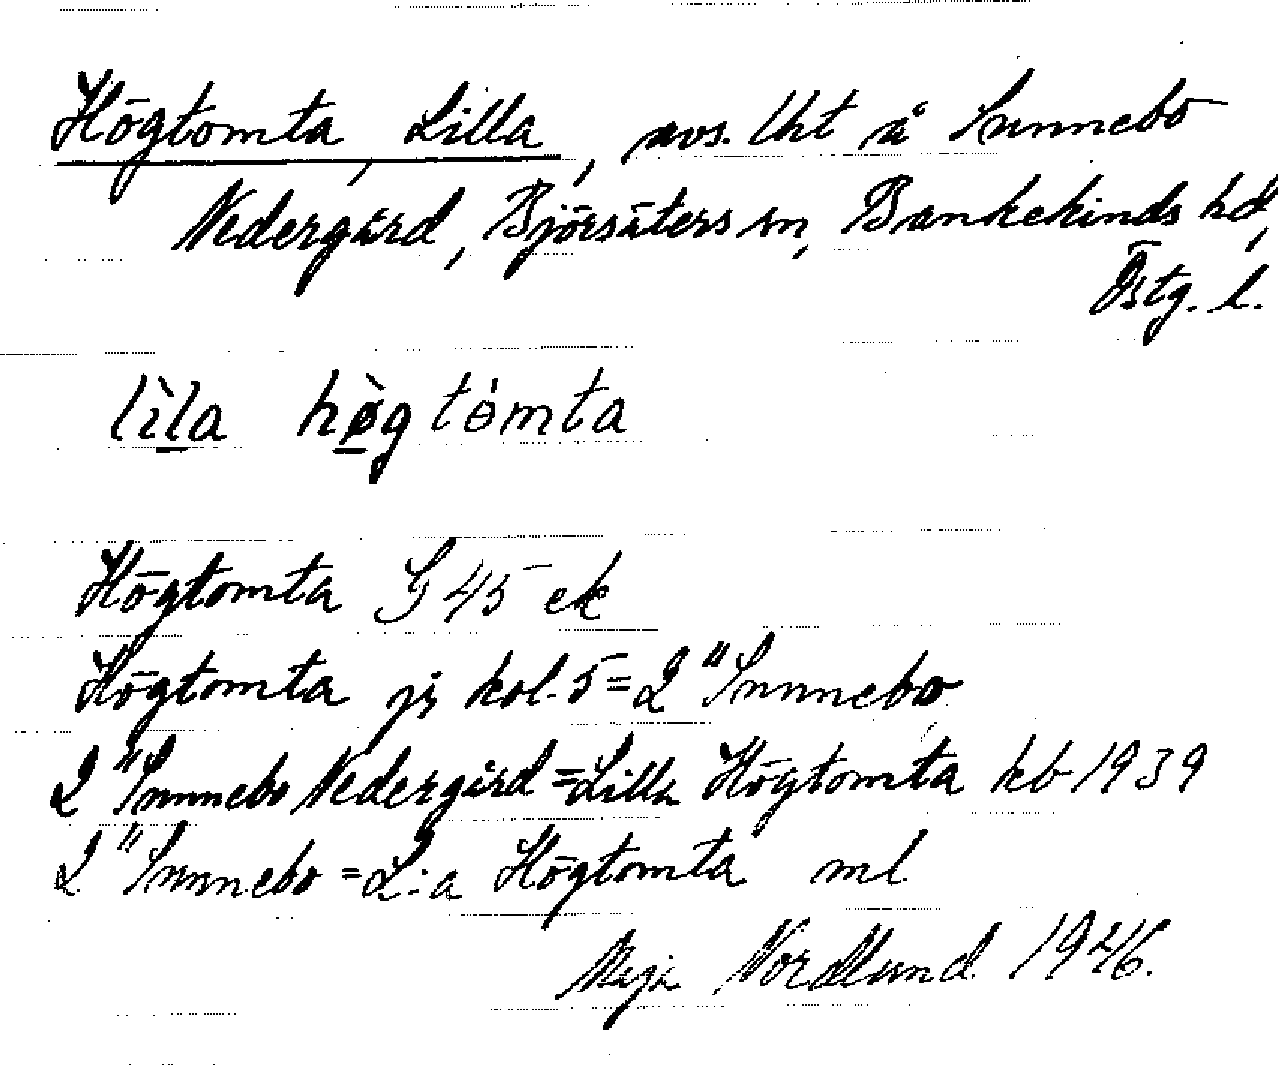 Högtomta, Lilla, avs. lht å Sunnebo
Nedergård, Björsäters sn, Bankekinds hd,
Östg. l.
lìla hø̀gtòmta
Högtomta G 45 ek
Högtomta jr kol. 5 = 2 "Sunnebo
2 "Sunnebo Nedergård = Lilla Högtomta kb 1939
2 "Sunnebo = L:a Högtomta ml
Maja Nordlund 1946.